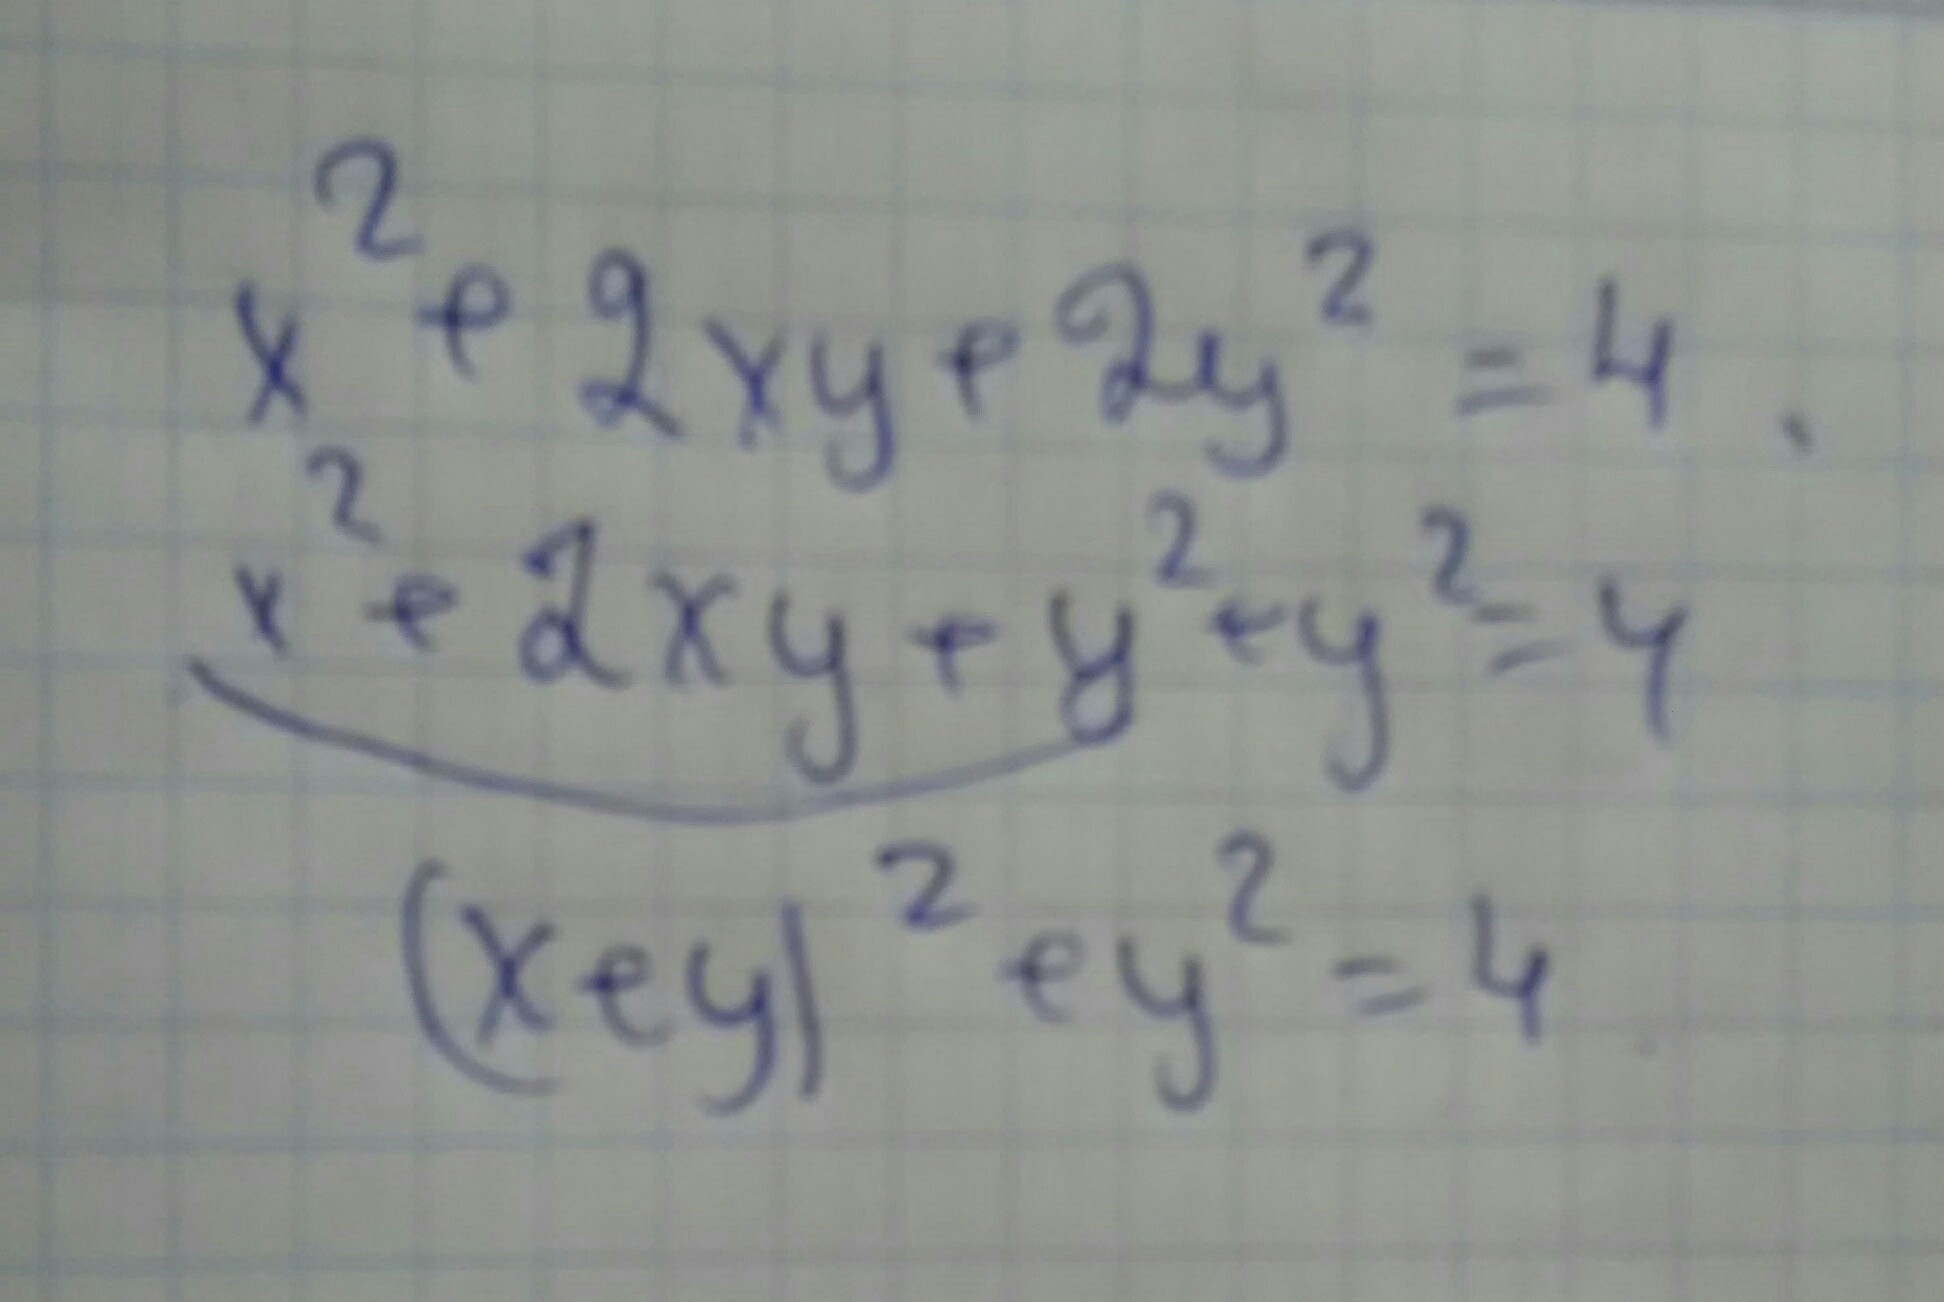 x² + 2xy + 2y² = 4.
x² + 2xy + y² + y² = 4
(x+y)² + y² = 4